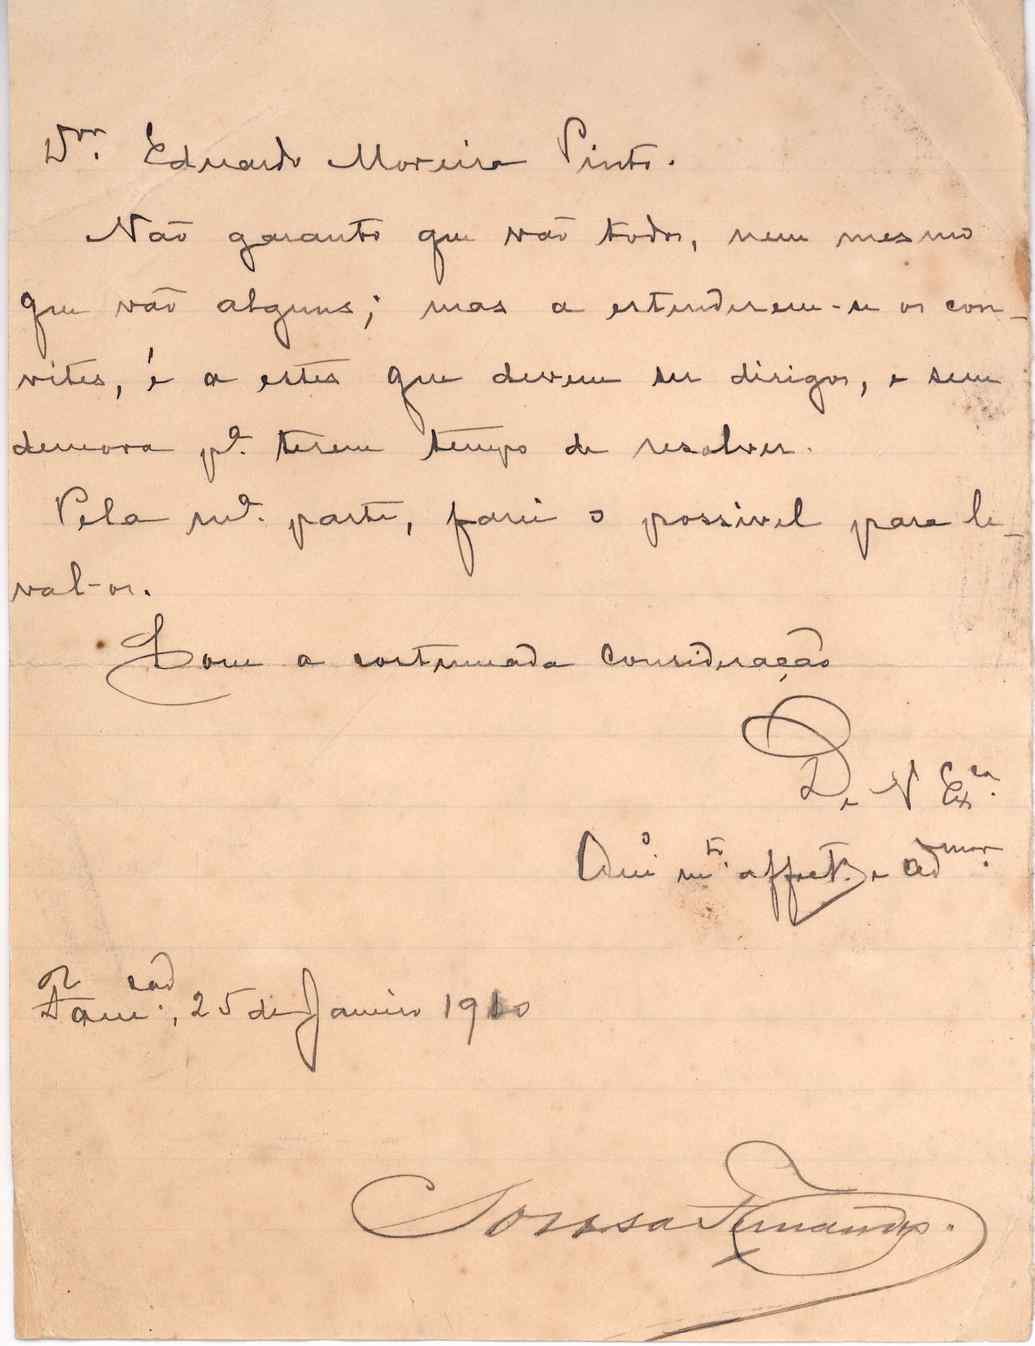 Dor. Eduardo Moreira Pinto.
Não garanto que vão todos, nem mesmo
que vão alguns; mas a estenderem-se os con-
vites, é a estes que devem ser dirigos, e sem
demora pª. terem tempo de resolver.
Pela mª. parte, farei o possivel para le-
val-os.
Com a costumada consideração
De V Exca.
Amº mto. affect. e admor.
Famcão., 25 de Janeiro 1910
Sousa Fernandes.